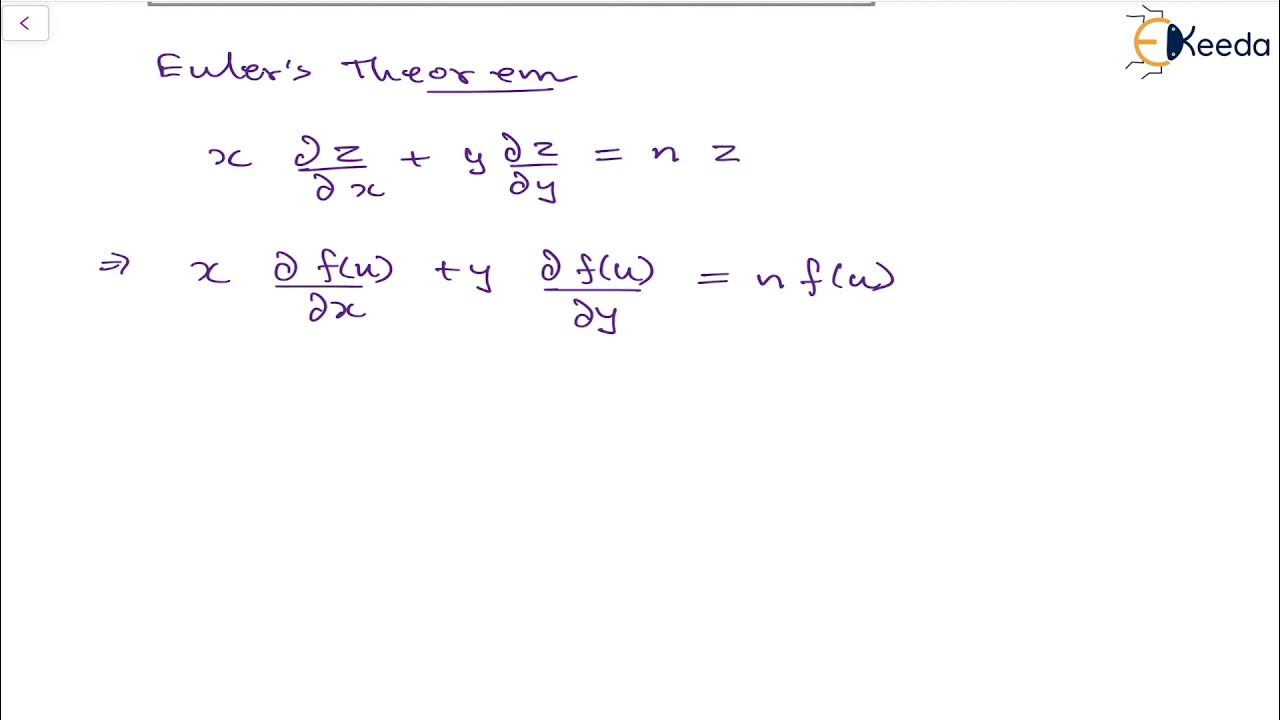 EKeeda
Euler's Theorem
x ∂z/∂x + y ∂z/∂y = n z
⇒ x ∂f(u)/∂x + y ∂f(u)/∂y = n f(u)